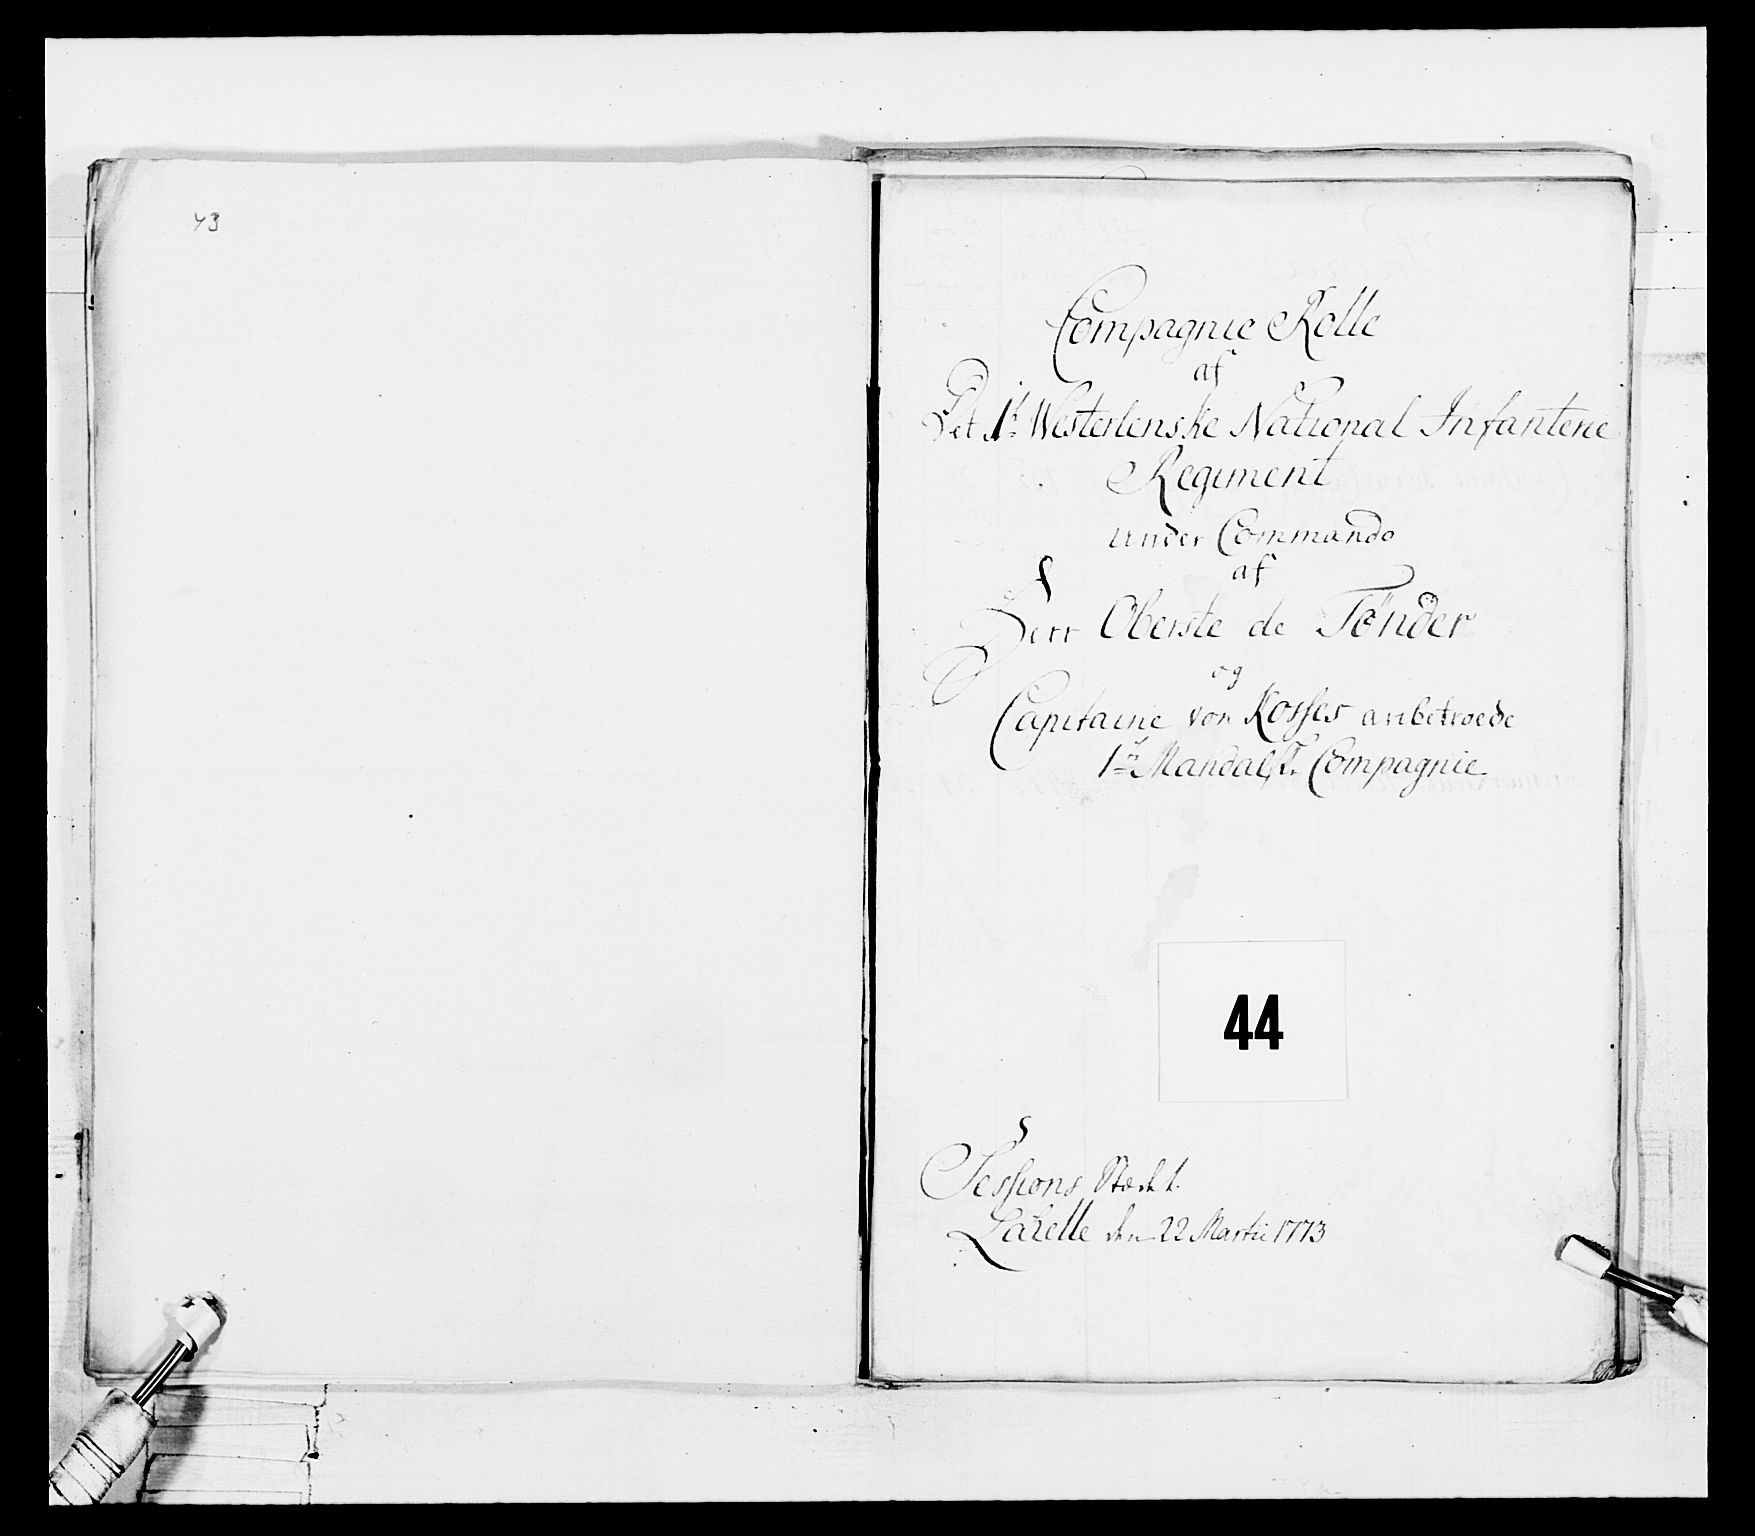 43
Compagnie Rolle
af
Det 1te Westerlenske National Infanterie
Regiment
under Commando
af
Herr Oberste de Tönder
og
Capitaine von Kosses anbetroede
1te Mandalske Compagnie
44
Sessions Stædet
den 22 Martii 1773